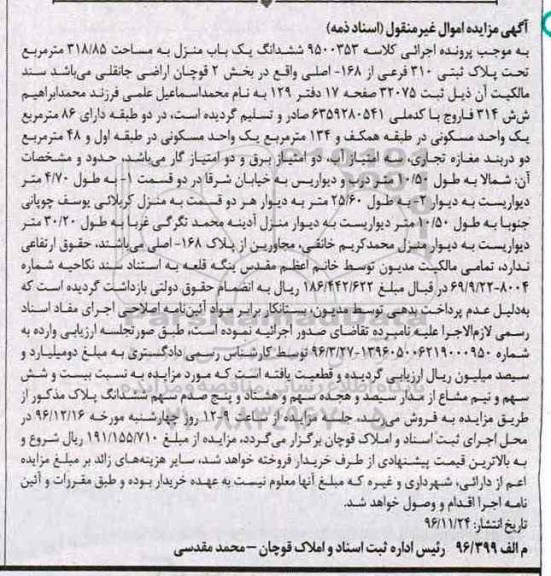 آگهی مزایده اموال غیرمنقول (اسناد ذمه)
به موجب پرونده اجرائی کلاسه ۹۵۰۰۳۵۳ ششدانگ یک باب منزل به مساحت ۳۱۸/۸۵ مترمربع
تحت پلاک ثبتی ۳۱۰ فرعی از ۱۶۸- اصلی واقع در بخش ۲ قوچان اراضی جانقلی می‌باشد سند
مالکیت آن ذیل ثبت ۳۲۰۷۵ صفحه ۱۷ دفتر ۱۲۹ به نام محمداسماعیل علمی فرزند محمدابراهیم
ش‌ش ۳۱۴ فاروج با کدملی ۶۳۵۹۲۸۰۵۴۱ صادر و تسلیم گردیده است، در دو طبقه دارای ۸۶ مترمربع
یک واحد مسکونی در طبقه همکف و ۱۳۴ مترمربع یک واحد مسکونی در طبقه اول و ۴۸ مترمربع
دو دربند مغازه تجاری، سه امتیاز آب، دو امتیاز برق و دو امتیاز گاز می‌باشد، حدود و مشخصات
آن: شمالا به طول ۱۰/۵۰ متر درب و دیواریس به خیابان شرقا در دو قسمت ۱- به طول ۴/۷۰ متر
دیواریست به دیوار ۲- به طول ۲۵/۶۰ متر به دیوار هر دو قسمت به منزل کربلائی یوسف چوپانی
جنوبا به طول ۱۰/۵۰ متر دیواریست به دیوار منزل آدینه محمد تگرگی غربا به طول ۳۰/۲۰ متر
دیواریست به دیوار منزل محمدکریم خانقی، مجاورین از پلاک ۱۶۸- اصلی می‌باشند، حقوق ارتفاعی
ندارد، تمامی مالکیت مدیون توسط خانم اعظم مقدس ینگه قلعه به استناد سند نکاحیه شماره
۸۰۰۴-۶۹/۹/۲۲ در قبال مبلغ ۱۸۶/۴۴۲/۶۲۲ ریال به انضمام حقوق دولتی بازداشت گردیده است که
به‌دلیل عدم پرداخت بدهی توسط مدیون، بستانکار برابر مواد آئین‌نامه اصلاحی اجرای مفاد اسناد
رسمی لازم‌الاجرا علیه نامبرده تقاضای صدور اجرائیه نموده است، طبق صورتجلسه ارزیابی وارده به
شماره ۱۳۹۶۰۵۰۰۶۲۱۹۰۰۰۹۵۰-۹۶/۳/۲۷ توسط کارشناس رسمی دادگستری به مبلغ دومیلیارد و
سیصد میلیون ریال ارزیابی گردیده و قطعیت یافته است که مورد مزایده به نسبت بیست و شش
سهم و نیم مشاع از مدار سیصد و هجده سهم و هشتاد و پنج صدم سهم ششدانگ پلاک مذکور از
طریق مزایده به فروش می‌رسد. جلسه مزایده از ساعت ۹-۱۲ روز چهارشنبه مورخه ۹۶/۱۲/۱۶ در
محل اجرای ثبت اسناد و املاک قوچان برگزار می‌گردد، مزایده از مبلغ ۱۹۱/۱۵۵/۷۱۰ ریال شروع و
به بالاترین قیمت پیشنهادی از طرف خریدار فروخته خواهد شد، سایر هزینه‌های زائد بر مبلغ مزایده
اعم از دارائی، شهرداری و غیره که مبلغ آنها معلوم نیست به عهده خریدار بوده و طبق مقررات و آئین
نامه اجرا اقدام و وصول خواهد شد.
تاریخ انتشار: ۹۶/۱۱/۲۴
م الف ۹۶/۳۹۹ رئیس اداره ثبت اسناد و املاک قوچان – محمد مقدسی